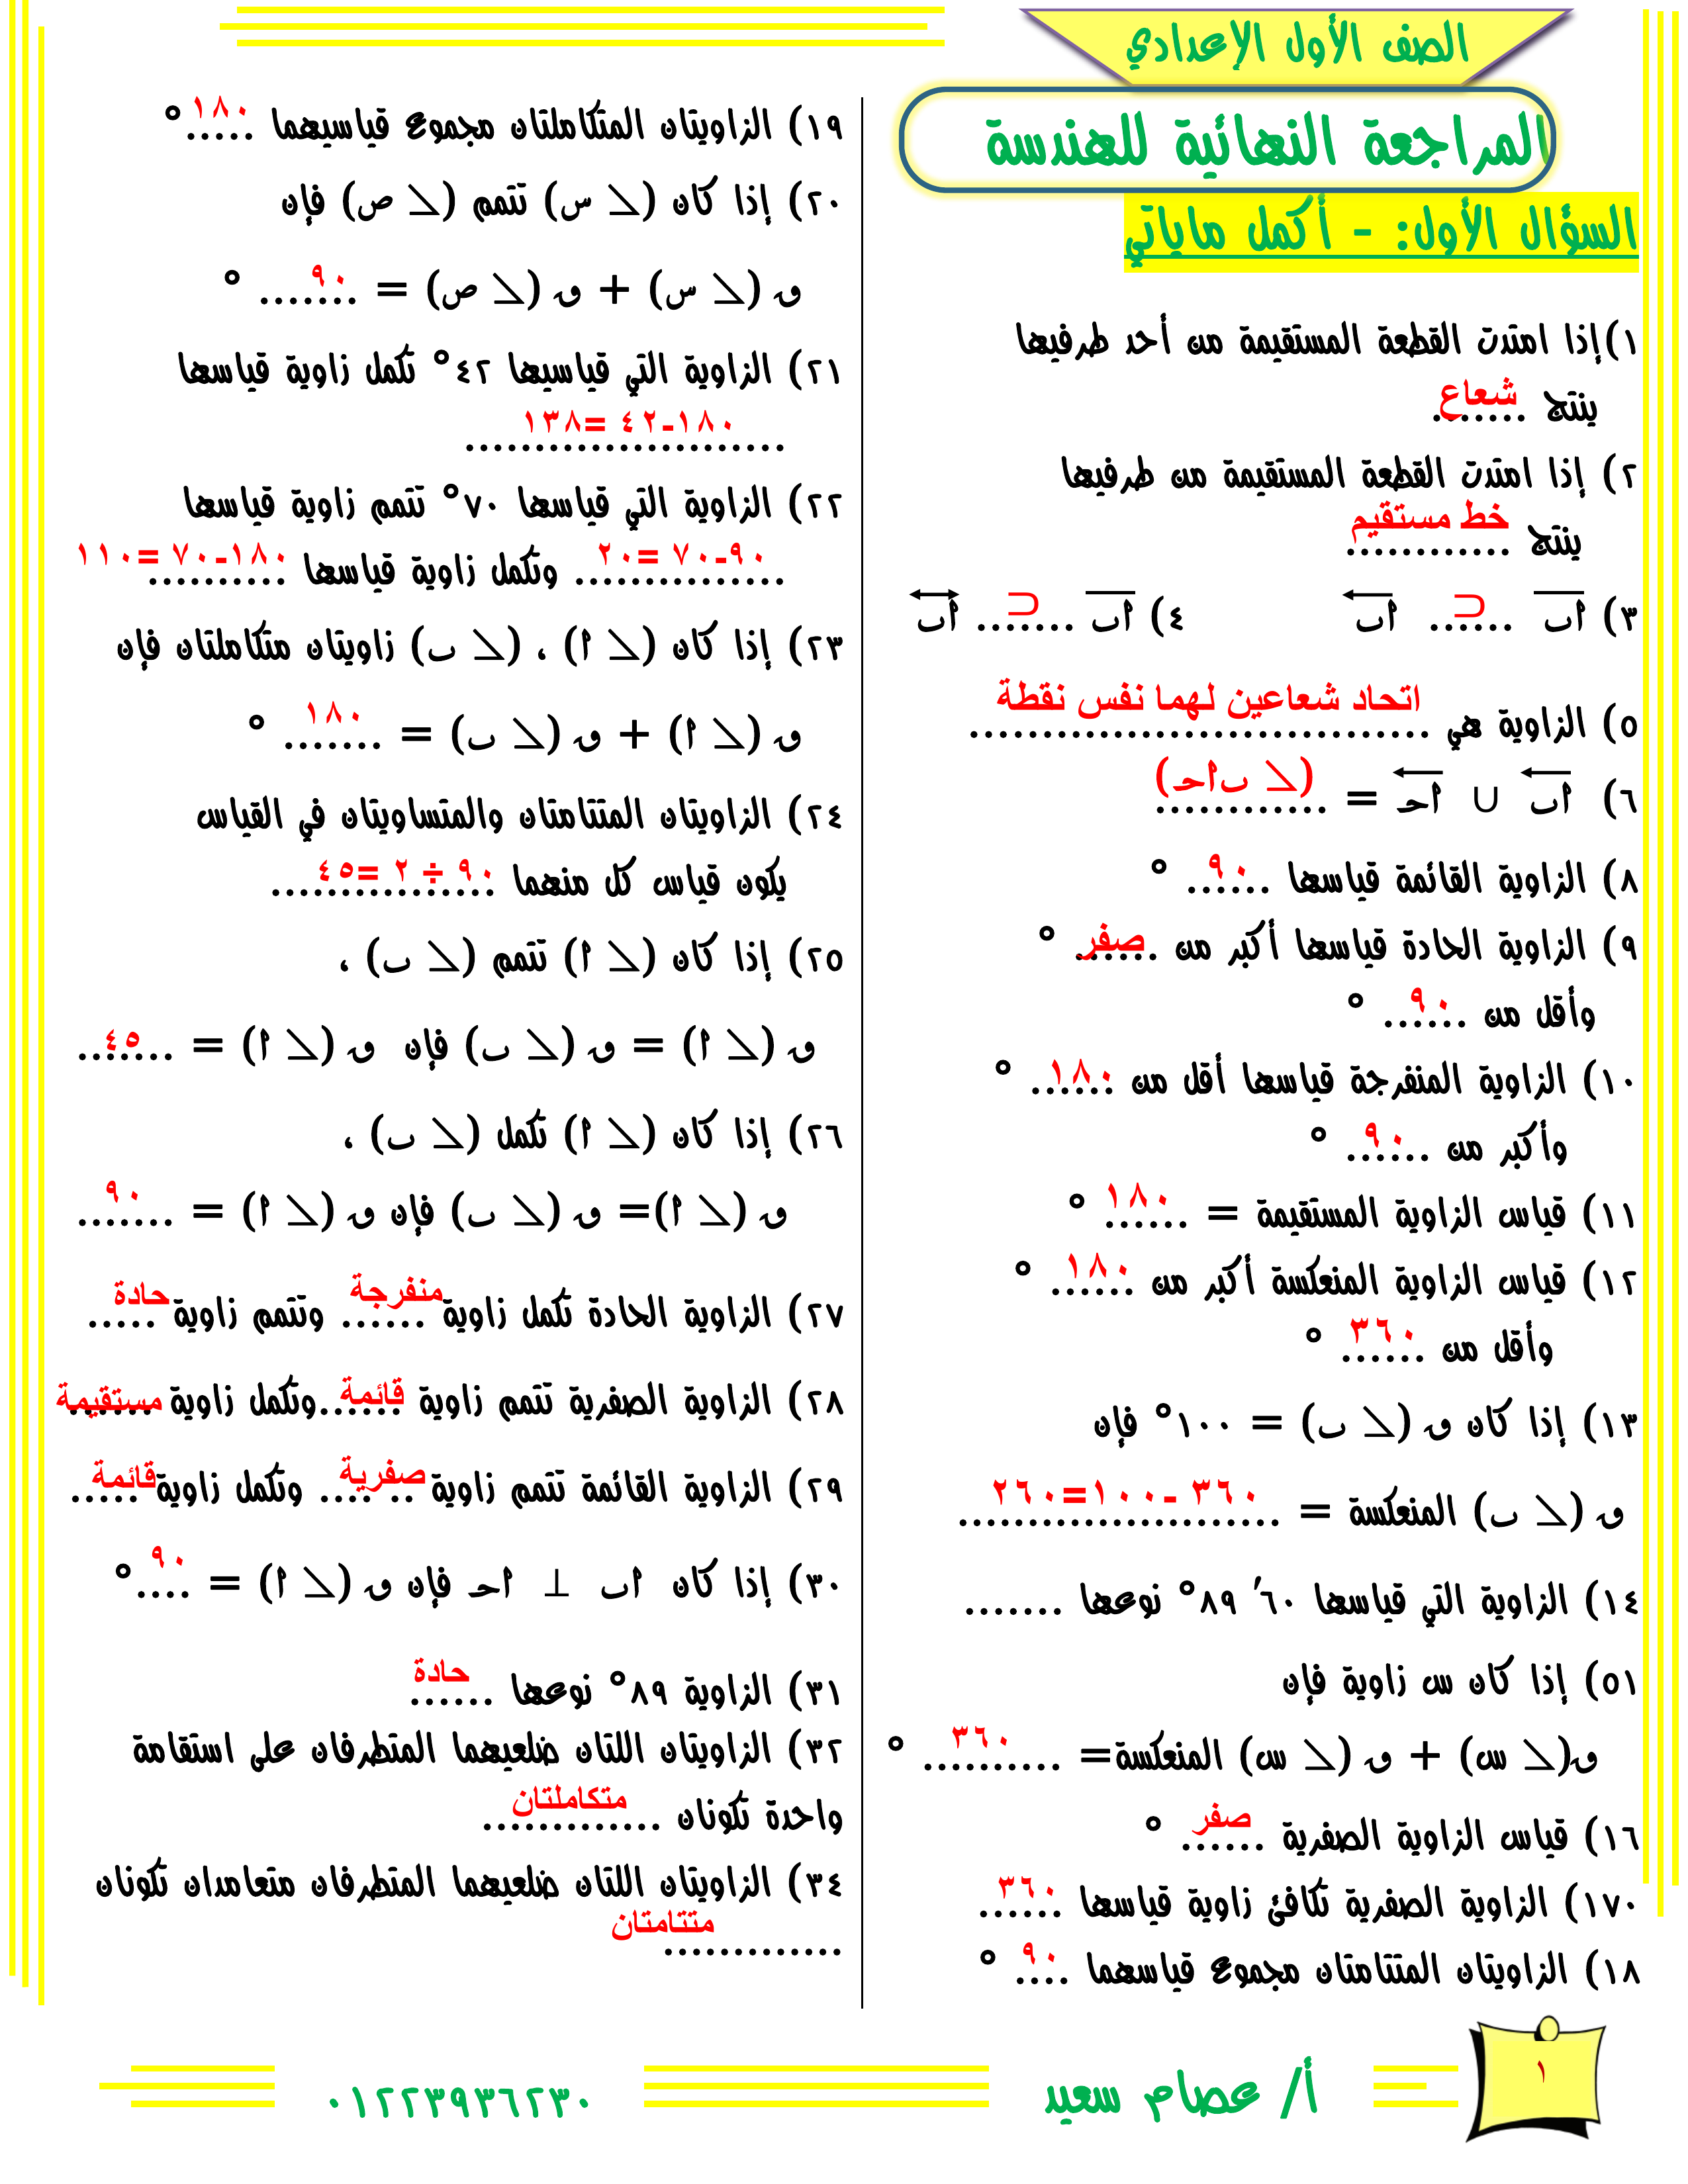 الصف الأول الإعدادي
المراجعة النهائية للهندسة
السؤال الأول: - أكمل ماياتي
١)إذا امتدت القطعة المستقيمة من أحد طرفيها
ينتج ....... شعاع
٢) إذا امتدت القطعة المستقيمة من طرفيها
ينتج ............ خط مستقيم
٣) اب ...... ⊂ اب ٤) اب ....... ⊂ اب
٥) الزاوية هي ................................. اتحاد شعاعين لهما نفس نقطة
٦) اب ∪ احـ = ............ (∠ ب‌احـ)
٨) الزاوية القائمة قياسها ...... ٩٠ °
٩) الزاوية الحادة قياسها أكبر من ...... صفر °
وأقل من ...... ٩٠ °
١٠) الزاوية المنفرجة قياسها أقل من ...... ١٨٠ °
وأكبر من ...... ٩٠ °
١١) قياس الزاوية المستقيمة = ...... ١٨٠ °
١٢) قياس الزاوية المنعكسة أكبر من ...... ١٨٠ °
وأقل من ...... ٣٦٠ °
١٣) إذا كان ق (∠ ب) = ١٠٠° فإن
ق (∠ ب) المنعكسة = ....................... ٣٦٠ -١٠٠=٢٦٠
١٤) الزاوية التي قياسها ٦٠ َ ٨٩° نوعها .......
٥١) إذا كان س زاوية فإن
ق(∠ س) + ق (∠ س) المنعكسة= .......... ٣٦٠ °
١٦) قياس الزاوية الصفرية ...... صفر °
١٧٠) الزاوية الصفرية تكافئ زاوية قياسها ...... ٣٦٠
١٨) الزاويتان المتتامتان مجموع قياسهما .... ٩٠ °
١٩) الزاويتان المتكاملتان مجموع قياسيهما ..... ١٨٠ °
٢٠) إذا كان (∠ س) تتمم (∠ ص) فإن
ق (∠ س) + ق (∠ ص) = ....... ٩٠ °
٢١) الزاوية التي قياسيها ٤٢° تكمل زاوية قياسها
....................... ١٨٠-٤٢ =١٣٨
٢٢) الزاوية التي قياسها ٧٠° تتمم زاوية قياسها
............... ٩٠-٧٠ =٢٠ وتكمل زاوية قياسها .......... ١٨٠-٧٠ =١١٠
٢٣) إذا كان (∠ ا) ، (∠ ب) زاويتان متكاملتان فإن
ق (∠ ا) + ق (∠ ب) = ....... ١٨٠ °
٢٤) الزاويتان المتتامتان والمتساويتان في القياس
يكون قياس كل منهما ................ ٩٠ ÷ ٢ =٤٥
٢٥) إذا كان (∠ ا) تتمم (∠ ب) ،
ق (∠ ا) = ق (∠ ب) فإن ق (∠ ا) = ....... ٤٥
٢٦) إذا كان (∠ ا) تكمل (∠ ب) ،
ق (∠ ا)= ق (∠ ب) فإن ق (∠ ا) = ....... ٩٠
٢٧) الزاوية الحادة تكمل زاوية ...... منفرجة وتتمم زاوية ..... حادة
٢٨) الزاوية الصفرية تتمم زاوية ...... قائمة وتكمل زاوية ...... مستقيمة
٢٩) الزاوية القائمة تتمم زاوية .. .... صفرية وتكمل زاوية ..... قائمة
٣٠) إذا كان اب ⊥ احـ فإن ق (∠ ا) = .... ٩٠ °
٣١) الزاوية ٨٩° نوعها ...... حادة
٣٢) الزاويتان اللتان ضلعيهما المتطرفان على استقامة
واحدة تكونان ............. متكاملتان
٣٤) الزاويتان اللتان ضلعيهما المتطرفان متعامدان تكونان
............. متتامتان
١
أ/ عصام سعيد
٠١٢٢٣٩٣٦٢٣٠